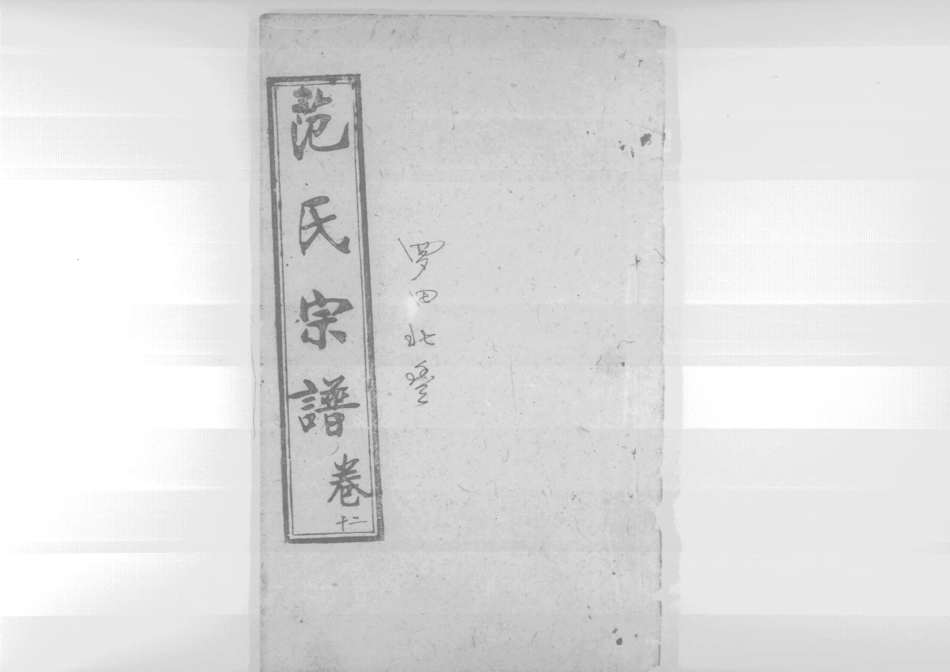 范氏宗譜卷
十二
罗田北